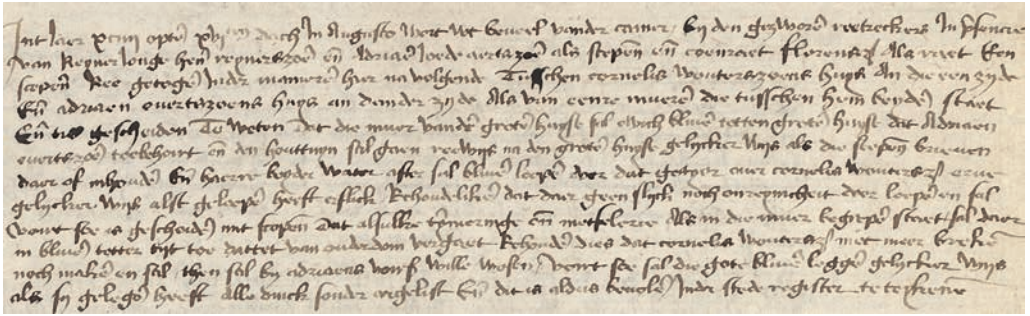 Int Jaer xciiij opten xvjten dach in Augusto wert wt beveel vander camer by den gezworen reetreckers In psencie
van Reyner Jonge heyn reynersz̃ en̄ Adriaen Joede aertszoen als scepen̄ en̄ coenraet florensz̃ Als raet Een
scepen̄ Ree getogen Inder manieren hier na volgende Tusschen cornelis wouterszoens huys An die een zyde
En̄ adriaen evertszoens huys an dander zyde Als van eenre mueren die tusschen hem beyden staet
En̄ tis gescheiden Te weten Dat die muer vanden groten huyse sal ewich bliven totten groten huyse dat Adriaen
evertszoen toebehoirt en̄ den houttuyn sal gaen reewijs na den groten huyse gelycker wijs als die scepen̄ brieven
daer of inhouden En̄ haerre beyder water after sal bliven lopen doer dat gootgat over cornelis woutersz̃ erve
gelycker wijs alst gelopen heeft Behoudeliken dat daer geen slyck noch onreynicheit doer lopen en sal
Voirt soe is gescheiden mit scepen Dat alsulke tymeringe en̄ metselerie Als in die muer begrepen staet sal daer
in bliven totter tijt toe dattet van ouderdom vergaet Behouden dies dat cornelis woutersz̃ niet meer breken
noch maken en sal, ten sal by adriaens voirs̃ wille wesen, Voirt soe sal die gote bliven leggen gelycker wijs
als sy gelegen heeft alle dinck sonder argelist En̄ dit is aldus bevolen Inder stede register te teykenen